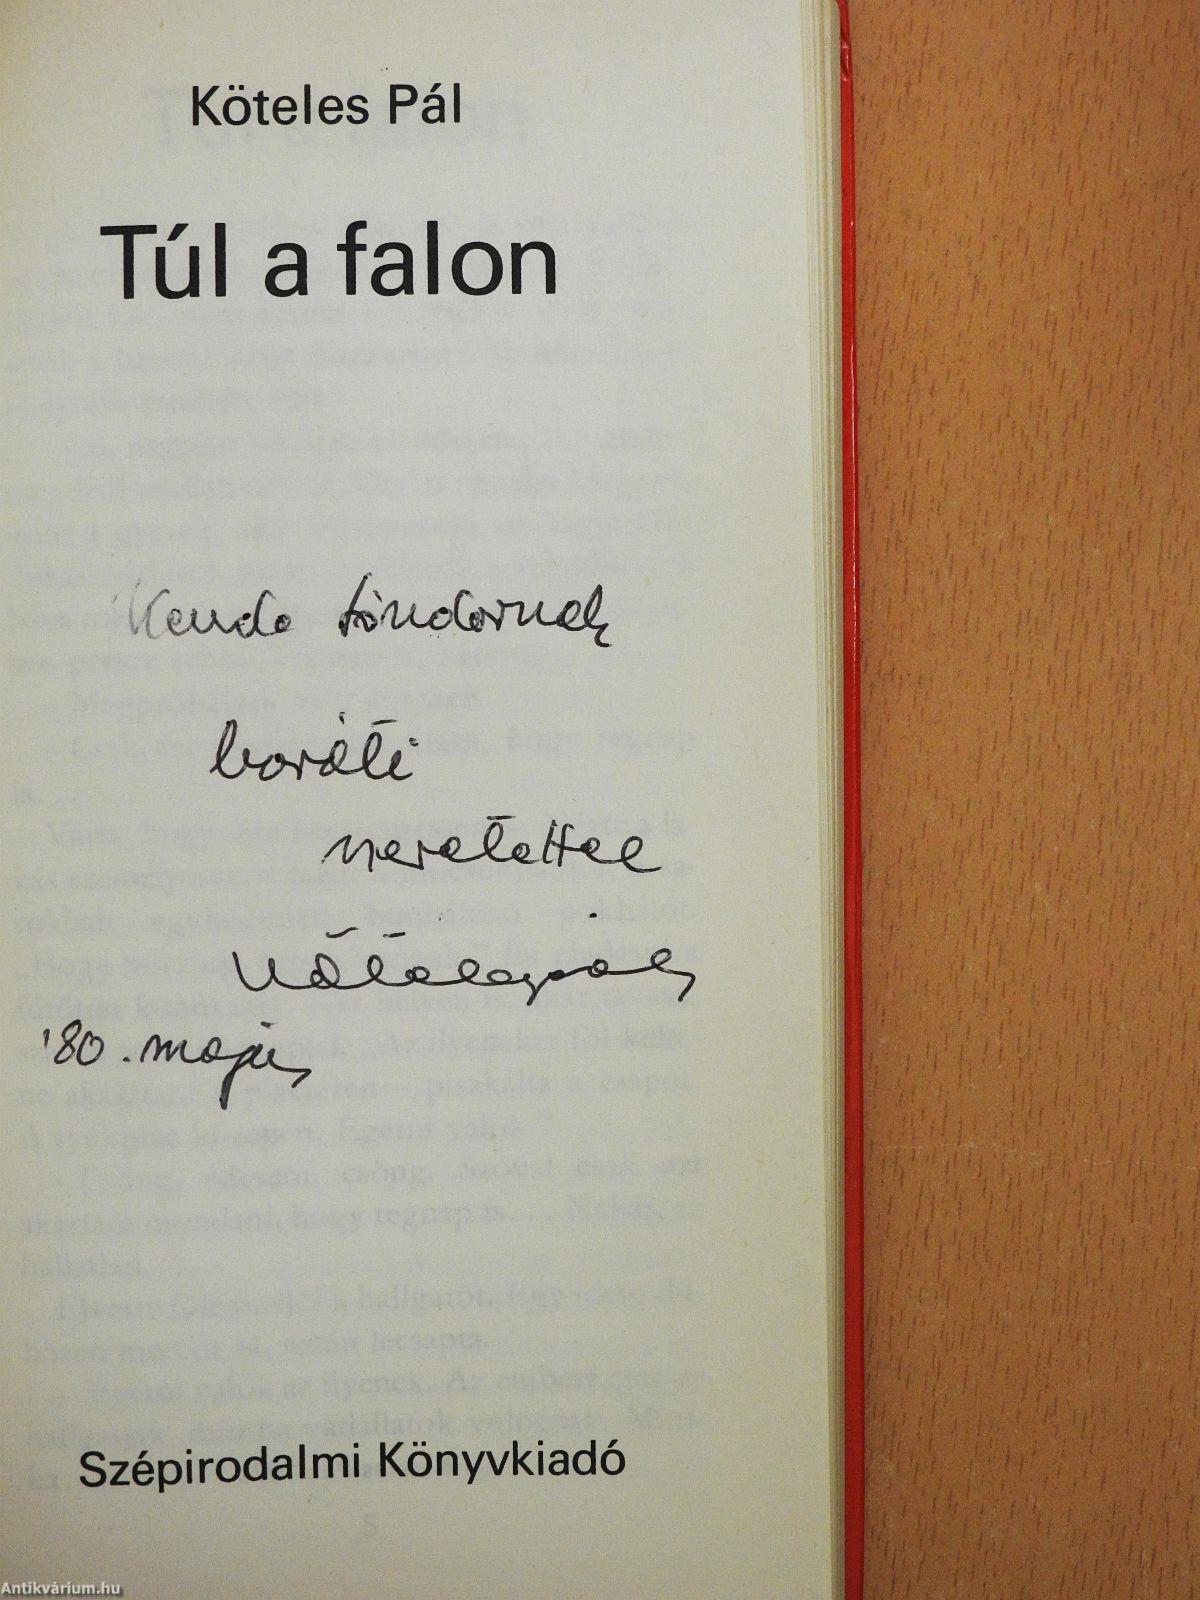 Köteles Pál
Túl a falon
Kenda Sándornak
baráti
szeretettel
Köteles Pál
'80. május
Szépirodalmi Könyvkiadó
5
Antikvárium.hu